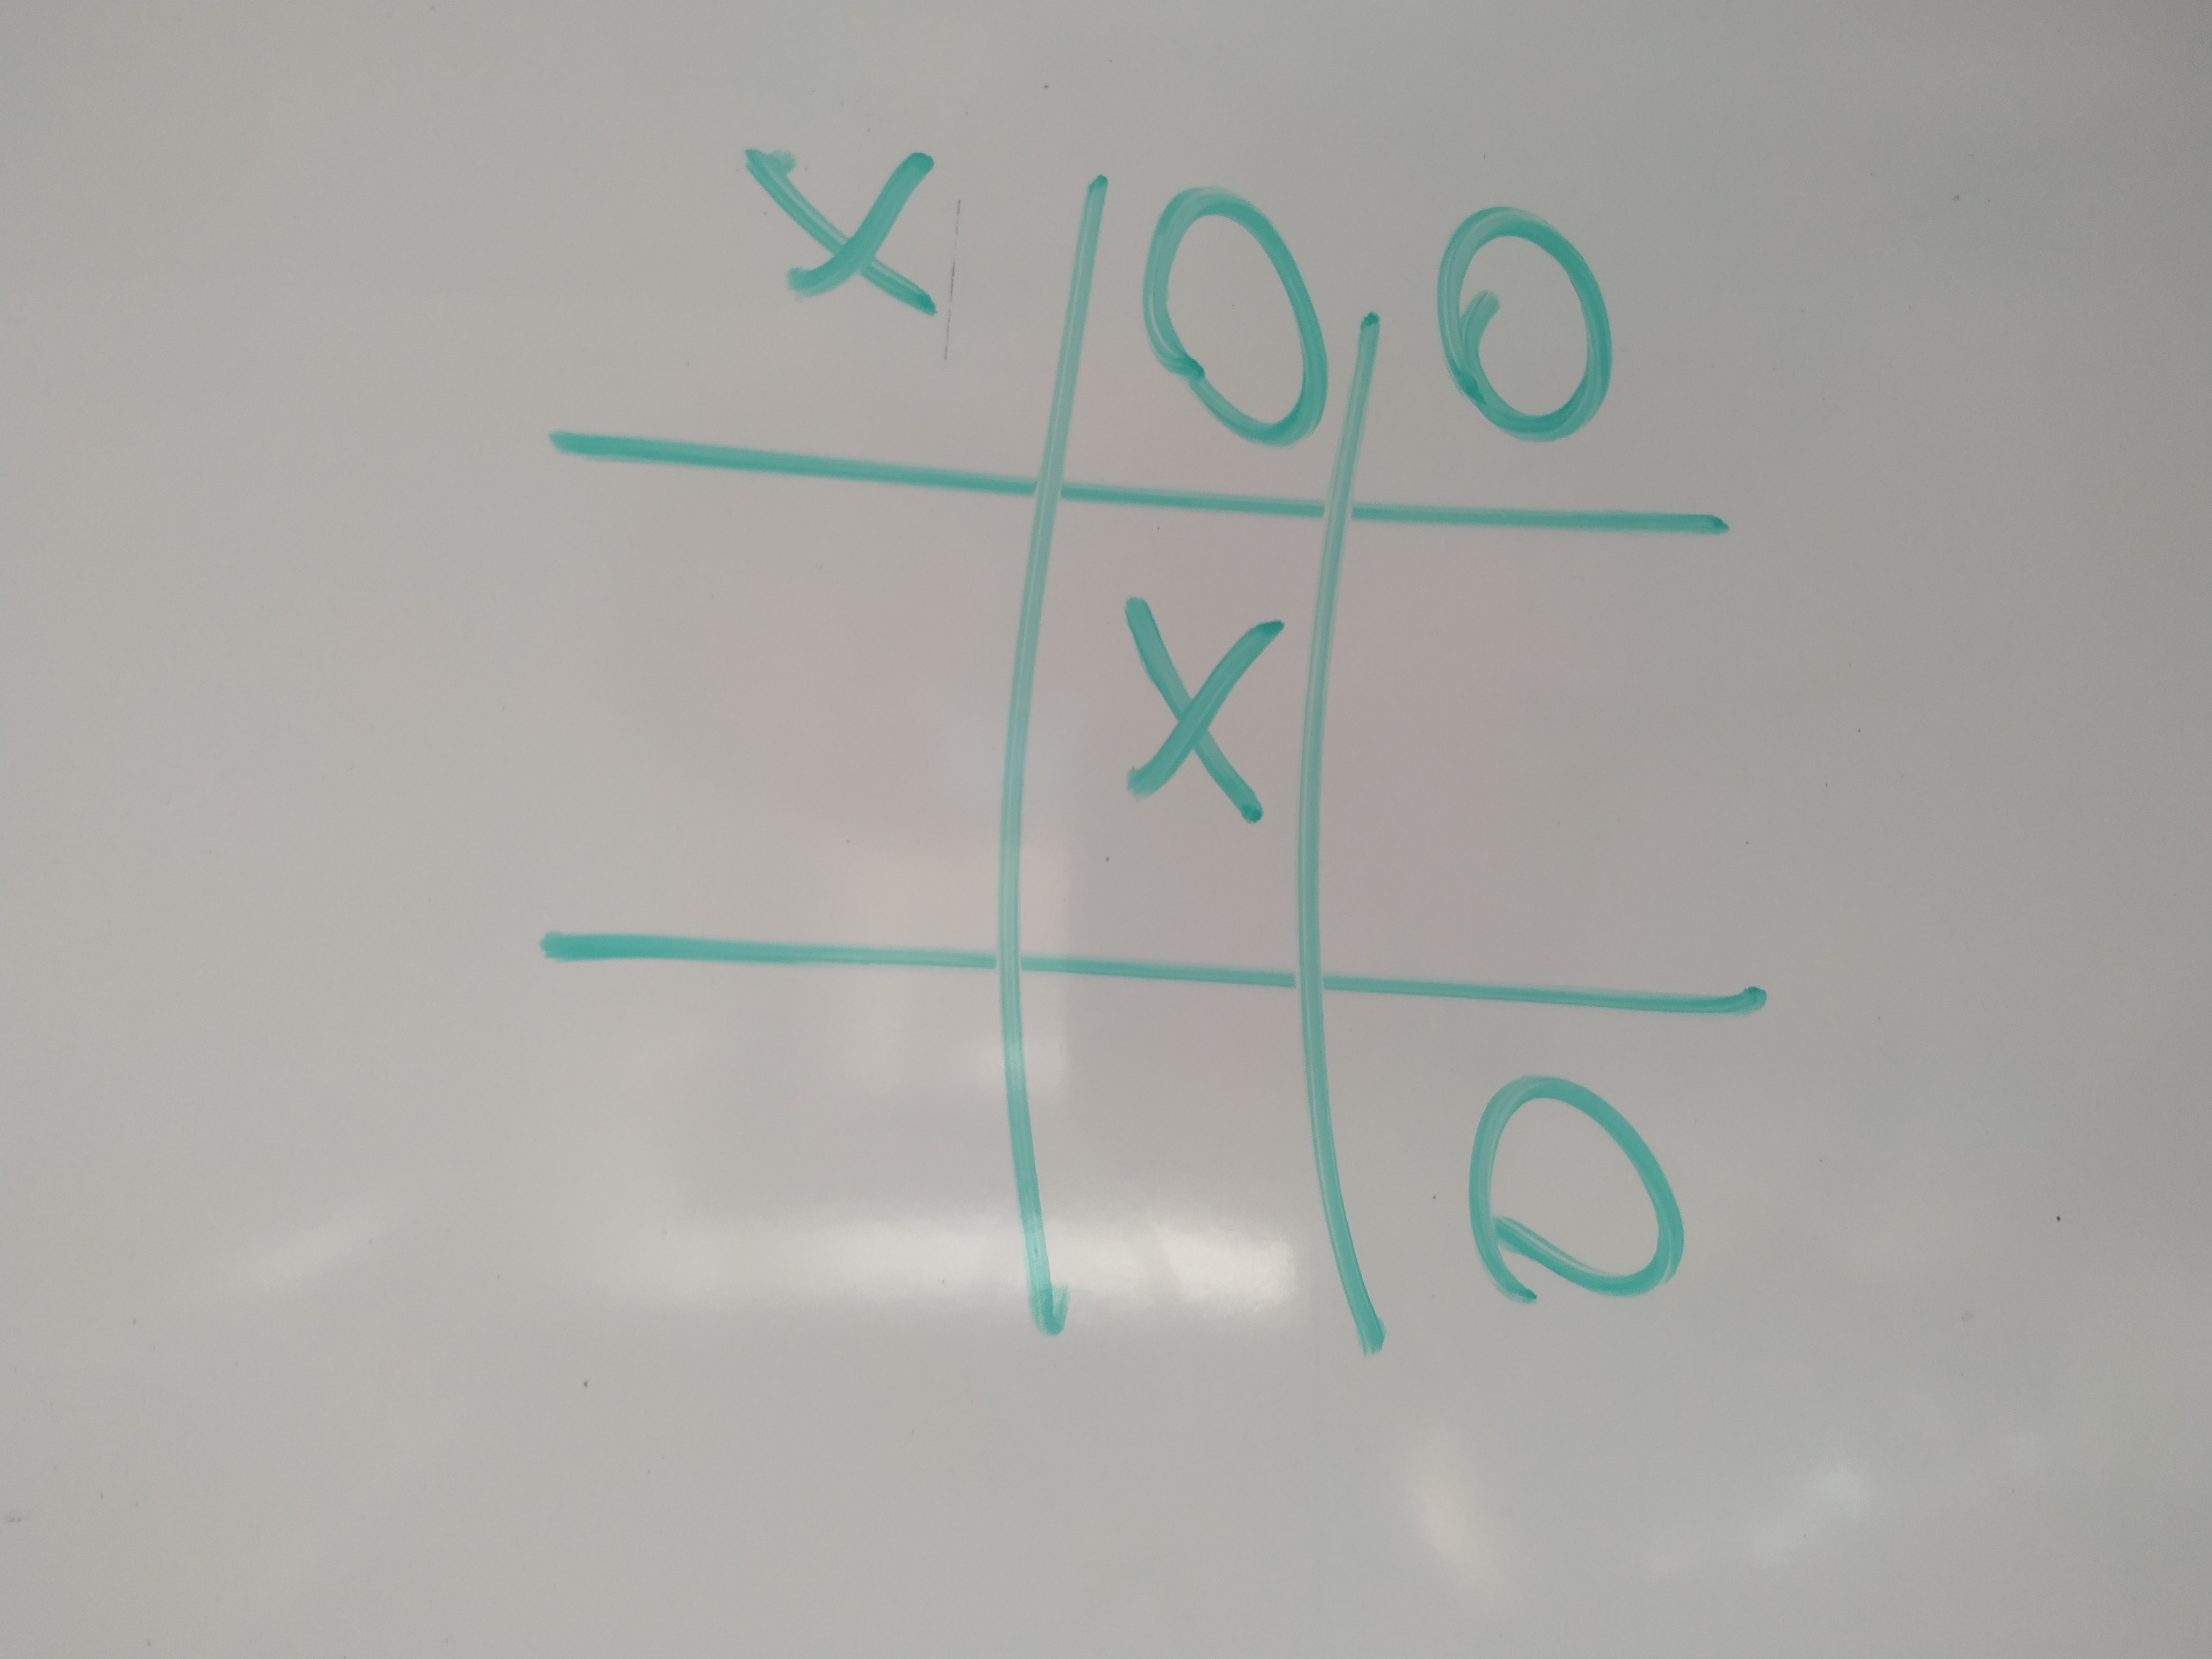 X
X O
O O